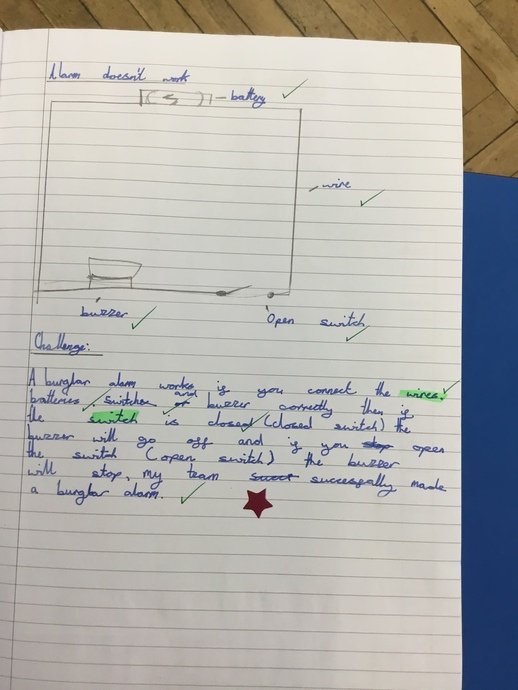 Alarm doesn't work
battery
wire
buzzer
Open switch
Challenge:
A burglar alarm works if you connect the wires,
batteries, switches and buzzer correctly then if
the switch is closed (closed switch) the
buzzer will go off and if you stop open
the switch (open switch) the buzzer
will stop, my team successfully made
a burglar alarm.